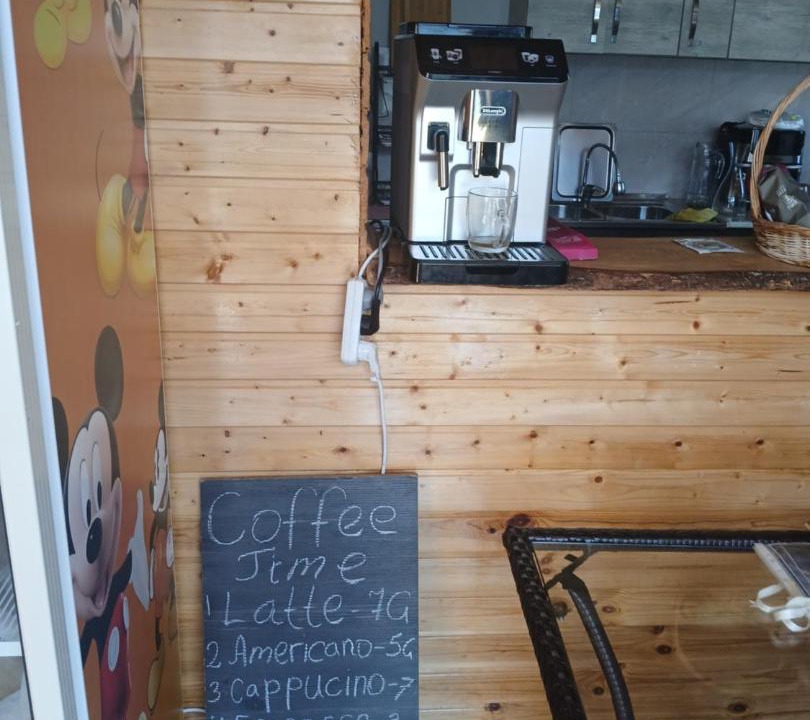 DeLonghi
Coffee
Time
1 Latte-7G
2 Americano-5G
3 Cappucino-7